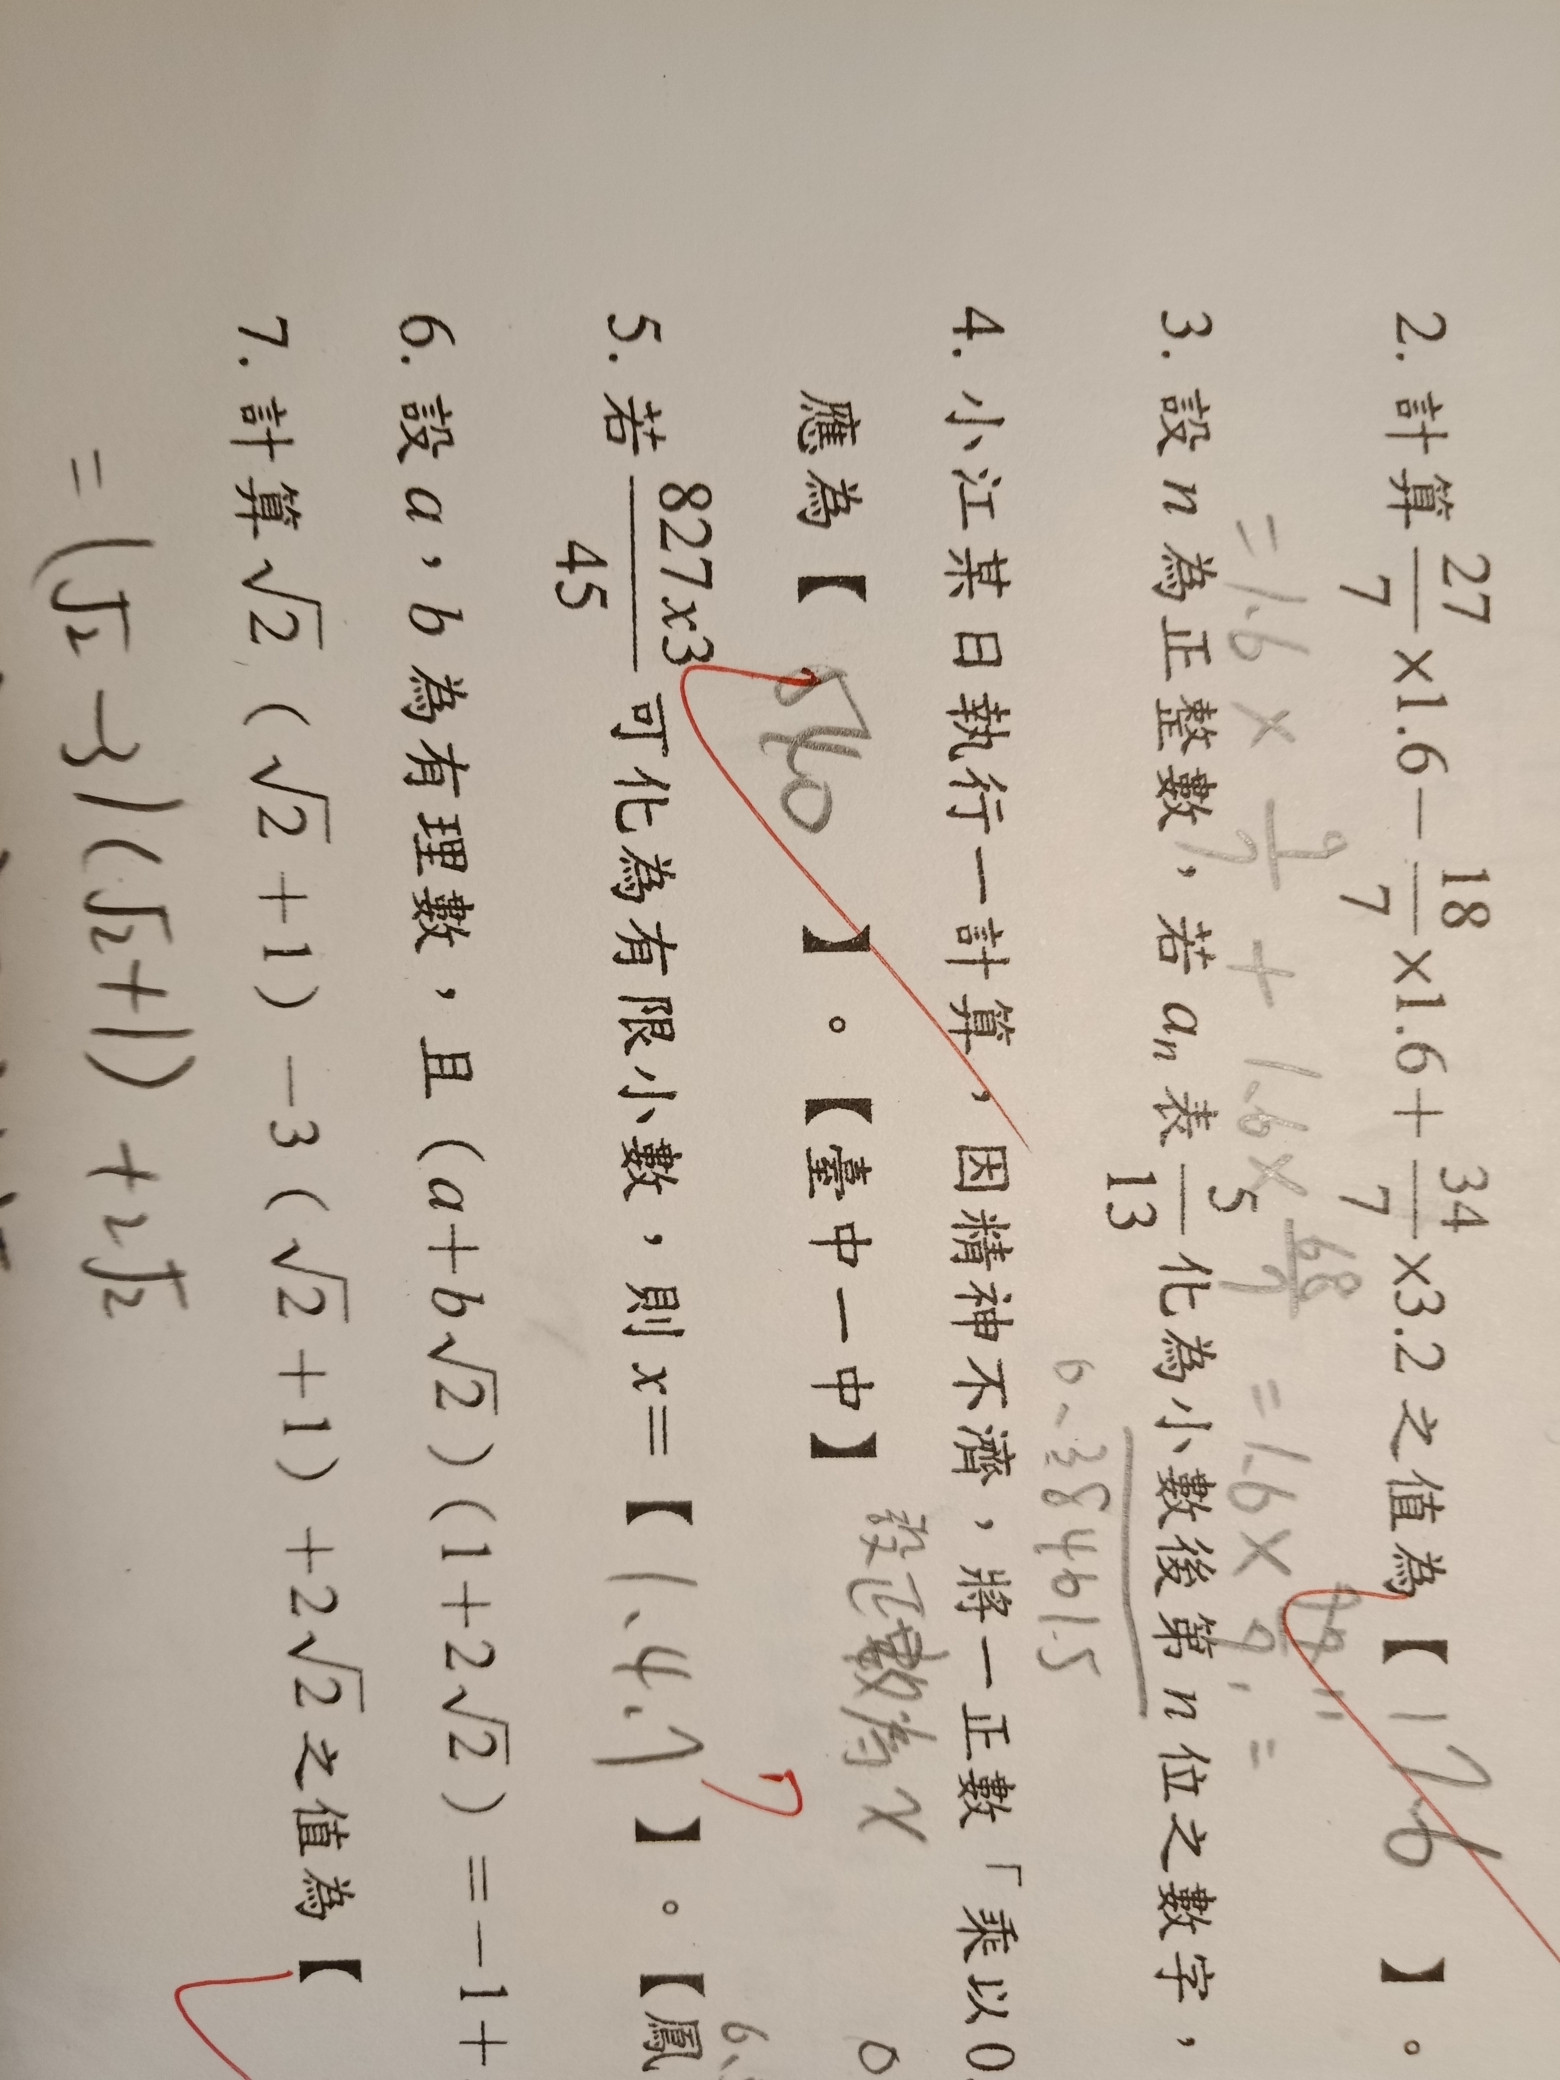 2. 計算 27/7 ×1.6− 18/7 ×1.6+ 34/7 ×3.2 之值為【 17.6 】。
= 1.6 × 9/7 + 1.6 × 68/7 = 1.6 × 11 =
3. 設 n 為正整數，若 aₙ 表 5/13 化為小數後第 n 位之數字，
0.384615
4. 小江某日執行一計算，因精神不濟，將一正數「乘以0.
應為【 540 】。【臺中一中】
設正數為 x
5. 若 827x3/45 可化為有限小數，則 x=【 1.4.7 】。【鳳
7
6. 設 a，b 為有理數，且 (a+b√2)(1+2√2)=−1+
7. 計算 √2 (√2+1) −3 (√2+1) +2√2 之值為【
= (√2 − 3)(√2+1) + 2√2